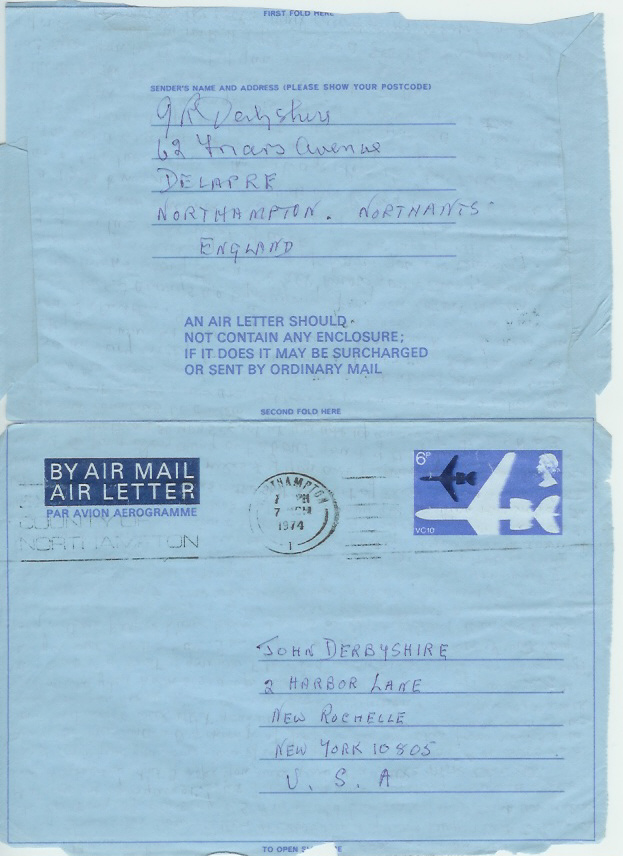 FIRST FOLD HERE
SENDER'S NAME AND ADDRESS (PLEASE SHOW YOUR POSTCODE)
G R Derbyshire
62 Friars Avenue
DELAPRE
NORTHAMPTON. NORTHANTS
ENGLAND
AN AIR LETTER SHOULD
NOT CONTAIN ANY ENCLOSURE;
IF IT DOES IT MAY BE SURCHARGED
OR SENT BY ORDINARY MAIL
SECOND FOLD HERE
BY AIR MAIL
AIR LETTER
PAR AVION AEROGRAMME
COUNTY OF
NORTHAMPTON
PM
7
1974
1
6P
VC10
JOHN DERBYSHIRE
2 HARBOR LANE
NEW ROCHELLE
NEW YORK 10805
U. S. A
TO OPEN